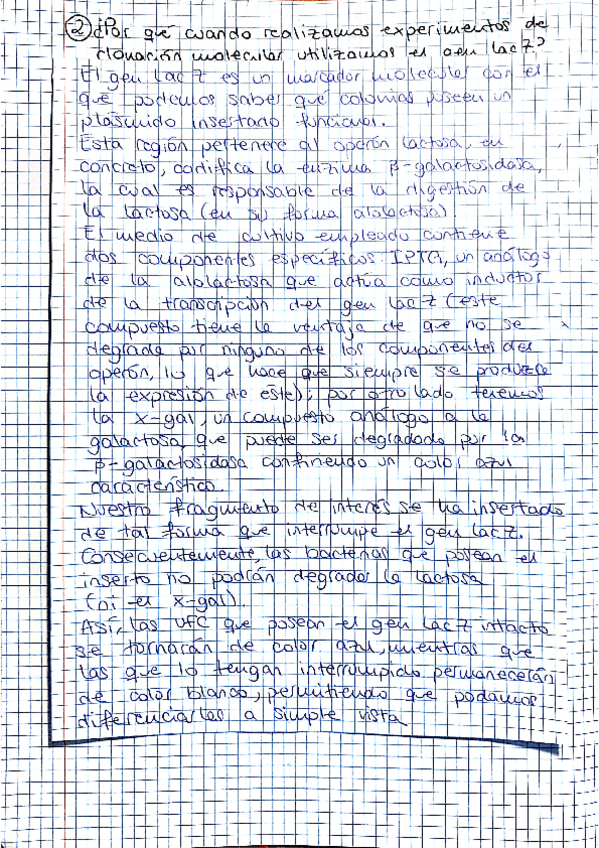 ② ¿Por qué cuando realizamos experimentos de
clonación molecular utilizamos el gen lac Z?
El gen lac Z es un marcador molecular con el
que podemos saber qué colonias poseen un
plásmido insertado funcional.
Esta región pertenece al operón lactosa, en
concreto, codifica la enzima β-galactosidasa,
la cual es responsable de la digestión de
la lactosa (en su forma alolactosa)
El medio de cultivo empleado contiene
dos componentes específicos: IPTG, un análogo
de la alolactosa que actúa como inductor
de la transcripción del gen lac Z (este
compuesto tiene la ventaja de que no se
degrada por ninguno de los componentes del
operón, lo que hace que siempre se produzca
la expresión de este); por otro lado tenemos
la x-gal, un compuesto análogo a la
galactosa, que puede ser degradado por la
β-galactosidasa confiriendo un color azul
característico.
Nuestro fragmento de interés se ha insertado
de tal forma que interrumpe el gen lac Z.
Consecuentemente, las bacterias que posean el
inserto no podrán degradar la lactosa
(ni el x-gal).
Así, las UFC que posean el gen lac Z intacto
se tornarán de color azul, mientras que
las que lo tengan interrumpido permanecerán
de color blanco, permitiendo que podamos
diferenciarlas a simple vista